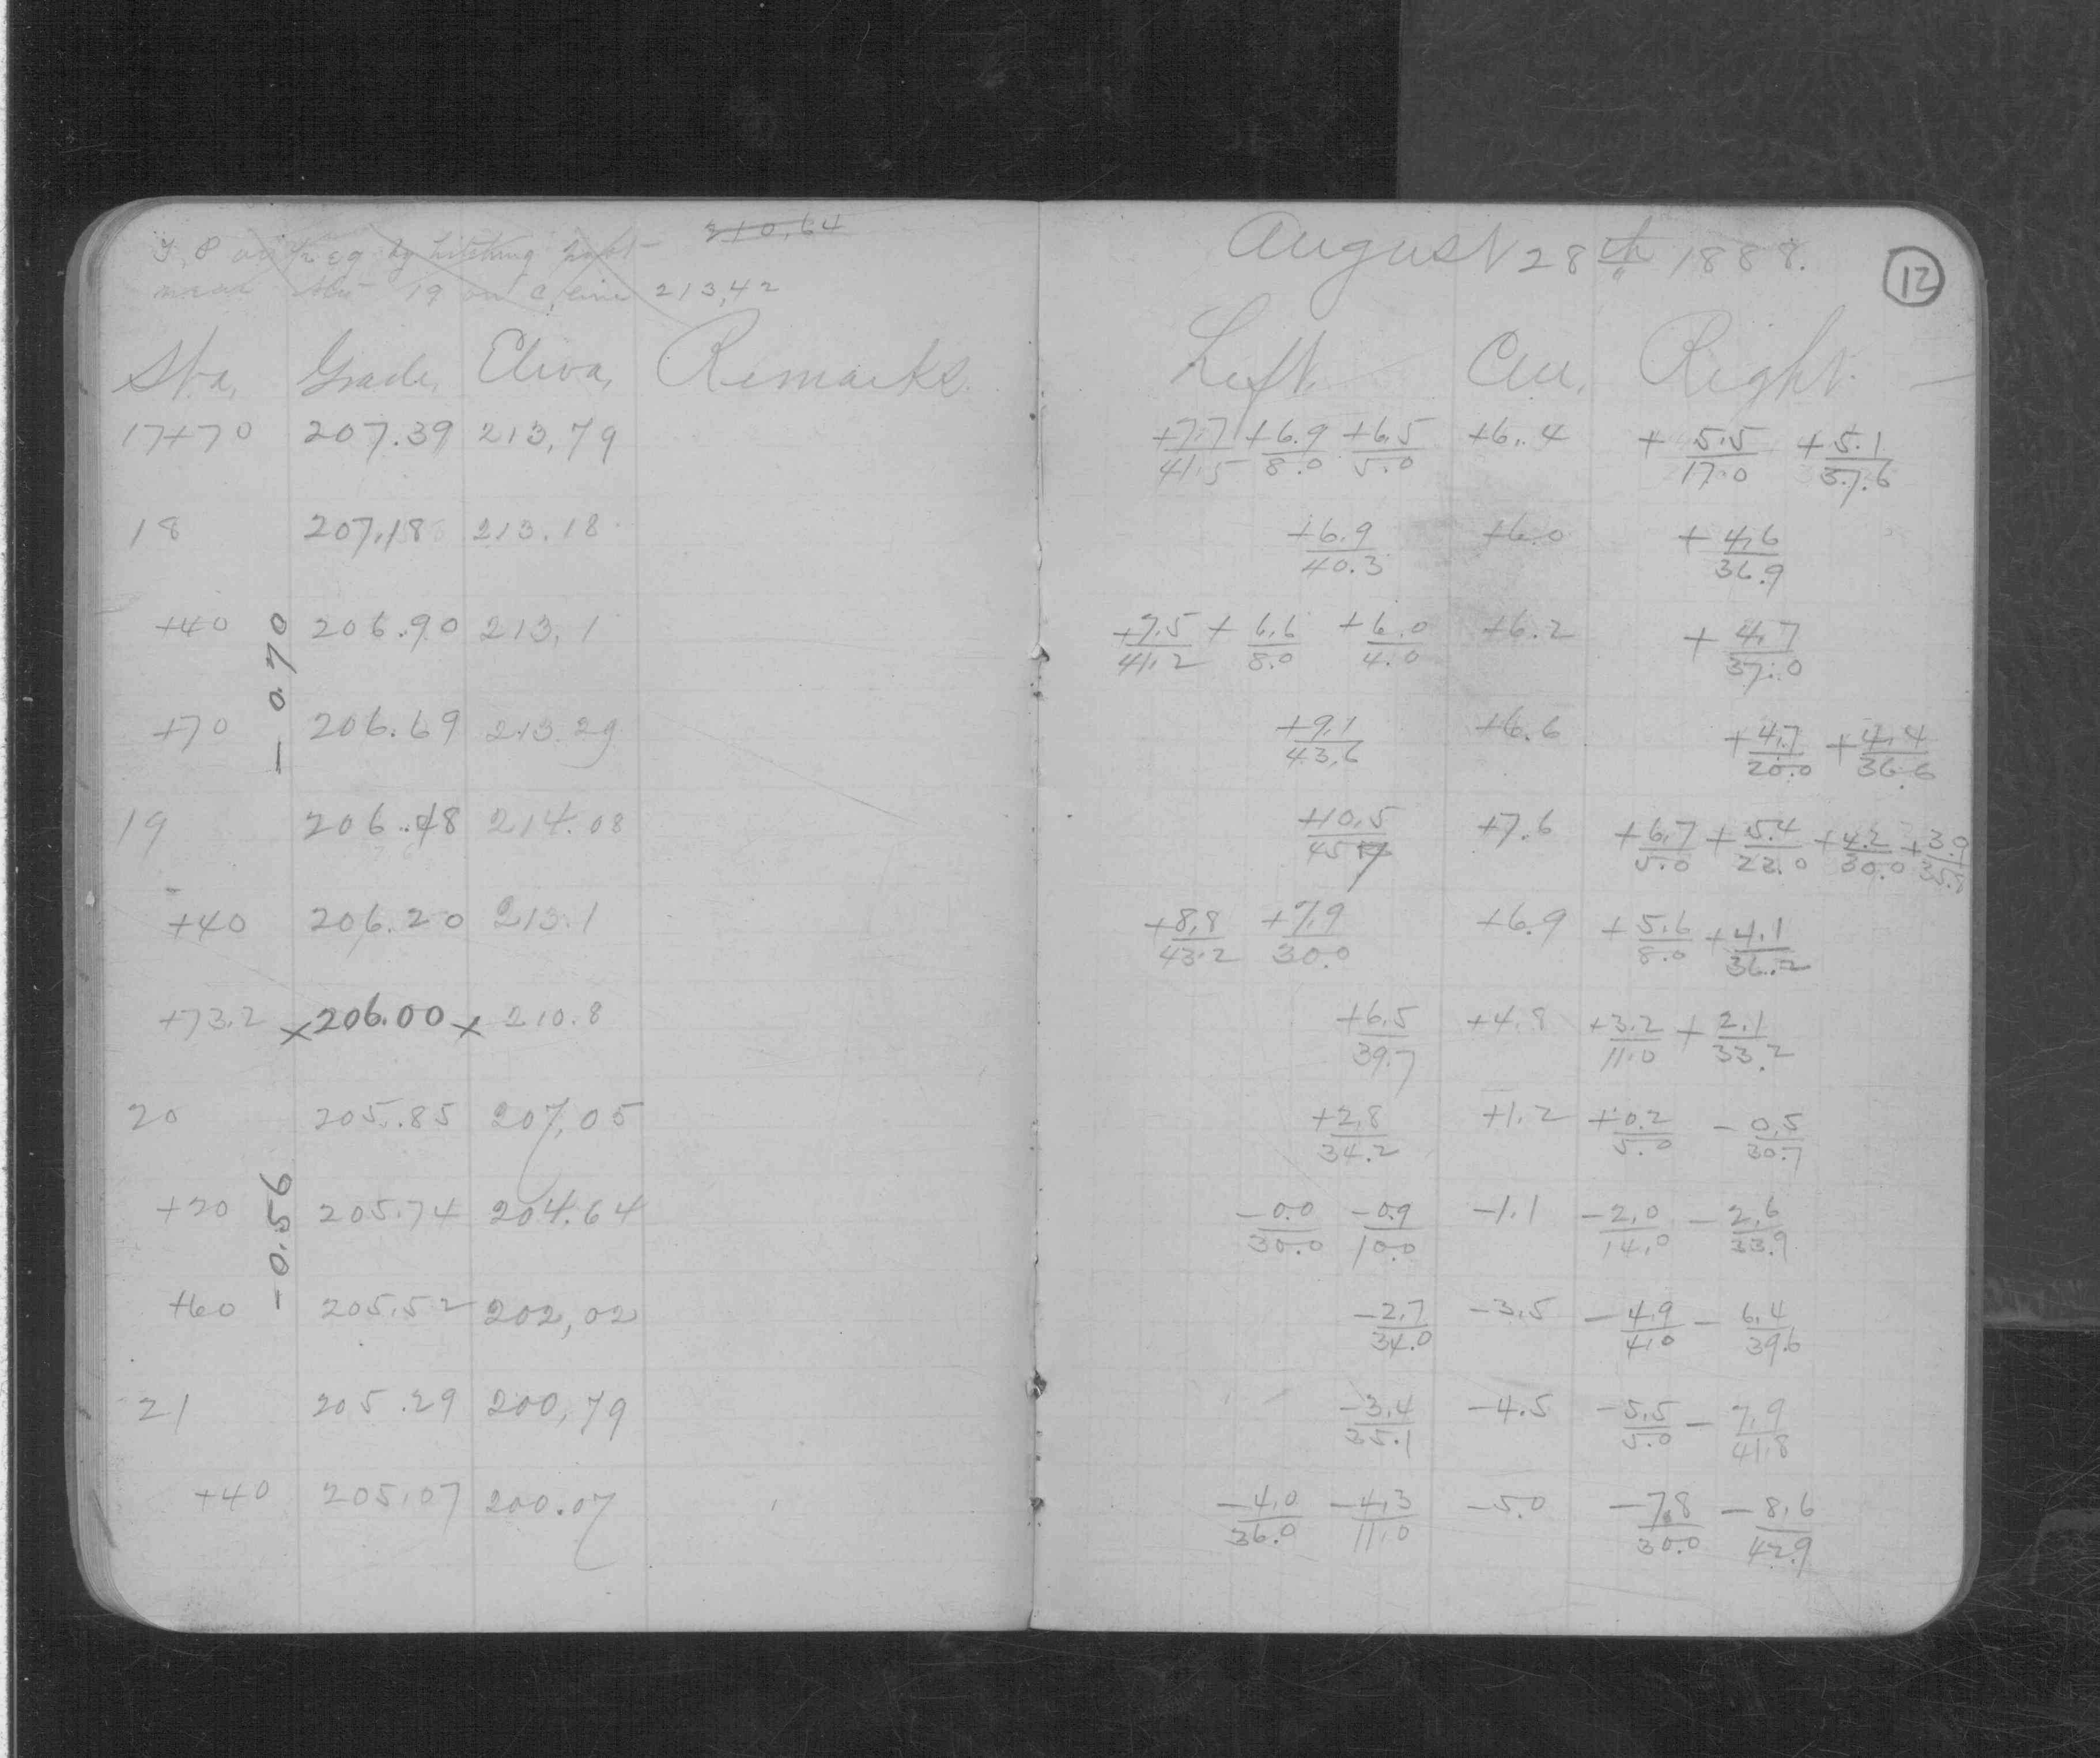 210,64
near Sta 19 on C, line 213,42
August 28th 1888.
12
Sta, Grade, Eleva, Remarks.
Left. Cen. Right.
17+70 207.39 213,79
+7.7/41.5 +6.9/8.0 +6.5/5.0 +6.4 +5.5/17.0 +5.1/37.6
18 207.18 213.18
+6.9/40.3 +6.0 +4.6/36.9
+40 206.90 213.1
+7.5/41.2 +6.6/8.0 +6.0/4.0 +6.2 +4.7/37.0
- 0.70
+70 206.69 213.29
+9.1/43.6 +6.6 +4.7/20.0 +4.4/36.6
19 206.48 214.08
+10.5/45.7 +7.6 +6.7/5.0 +5.4/23.0 +4.2/30.0 +3.9
+40 206.20 213.1
+8.8/43.2 +7.9/30.0 +6.9 +5.6/8.0 +4.1/36.2
+73.2 x 206.00 x 210.8
+6.5/39.7 +4.8 +3.2/11.0 +2.1/33.2
20 205.85 207,05
+2.8/34.2 +1.2 +0.2/5.0 -0.5/30.7
- 0.56
+20 205.74 204.64
-0.0/30.0 -0.9/10.0 -1.1 -2.0/14.0 -2.6/33.9
+60 205.52 202,02
-2.7/34.0 -3.5 -4.9/4.0 -6.4/39.6
21 205.29 200,79
-3.4/35.1 -4.5 -5.5/5.0 -7.9/41.8
+40 205.07 200.07
-4.0/36.0 -4.3/11.0 -5.0 -7.8/30.0 -8.6/42.9